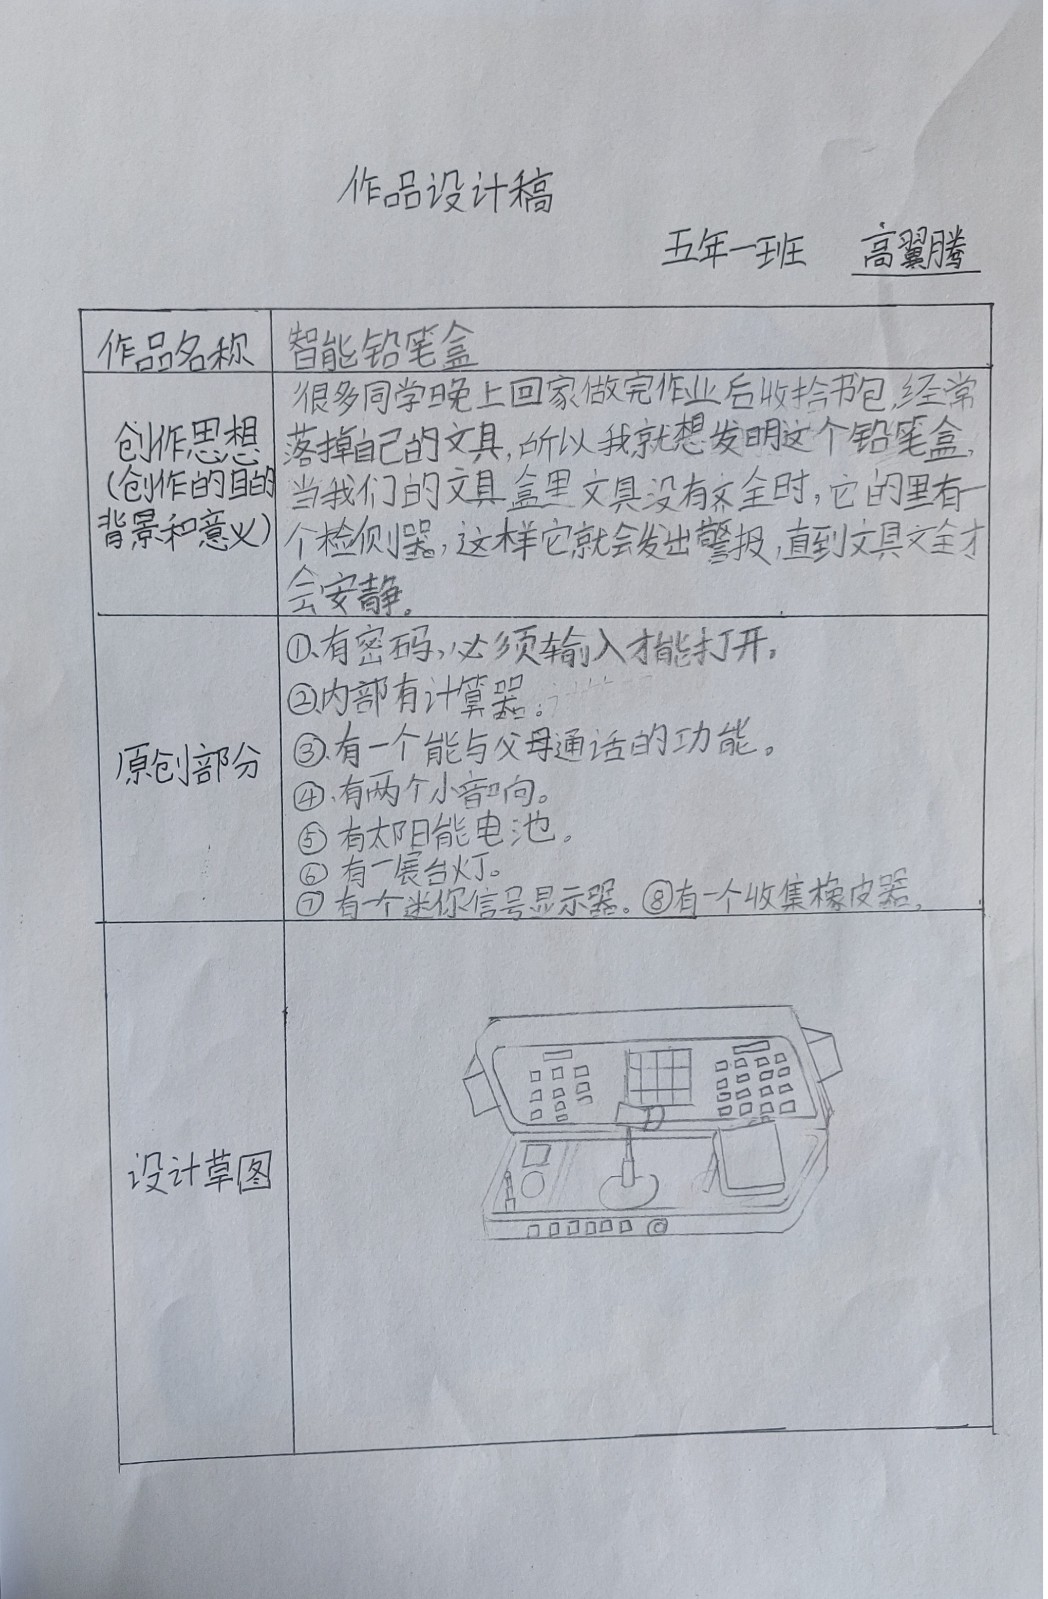 作品设计稿
五年一班 高翼腾
作品名称
智能铅笔盒
创作思想
(创作的目的
背景和意义)
很多同学晚上回家做完作业后收拾书包,经常
落掉自己的文具,所以我就想发明这个铅笔盒,
当我们的文具盒里文具没有齐全时,它的里有一
个检侧器,这样它就会发出警报,直到文具齐全才
会安静。
原创部分
①、有密码,必须输入才能打开。
②、内部有计算器。
③、有一个能与父母通话的功能。
④、有两个小音响。
⑤ 有太阳能电池。
⑥ 有一展台灯。
⑦ 有一个迷你信号显示器。⑧有一个收集橡皮器,
设计草图